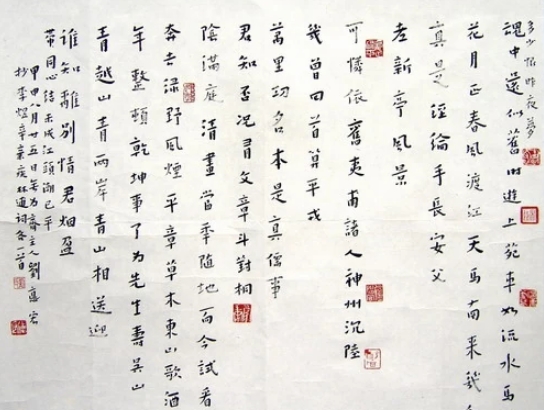 多少恨昨夜夢
魂中還似舊時遊上苑車如流水馬
花月正春風渡江天馬南來幾
真是經綸手長安父
老新亭風景
可憐依舊夷甫諸人神州沉陸
幾曾回首算平戎
萬里功名本是真儒事
君知否況有文章斗對桐
陰滿庭清晝當年隨地而今試看
綠野風煙平章草木東山歌酒
年整頓乾坤事了为先生壽吳山
青越山青兩岸青山相送迎
谁知離別情君盈
同心结未成江頭潮已平
甲申八月廿五日为齋主人劉
抄李煜辛棄疾林逋詞各一首